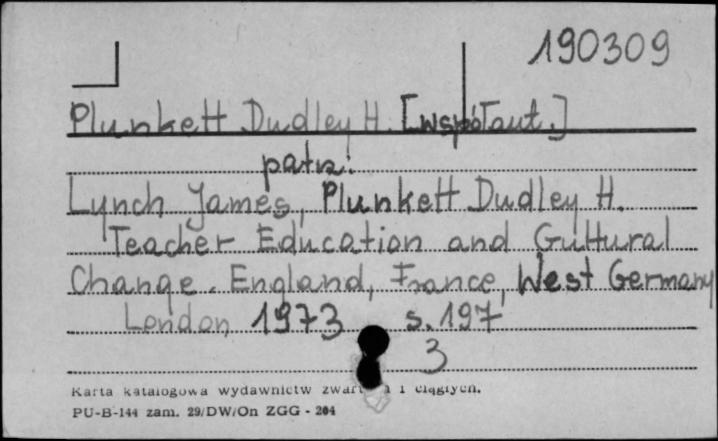 190309
Plunkett Dudley H. [współaut.]
patrz:
Lynch James, Plunkett Dudley H.
Teacher Education and Gultural
Change. England, France, West Germany
London 1973 s. 197
3
Karta katalogowa wydawnictw i ciągłych.
PU-B-144 zam. 29/DW/On ZGG - 204